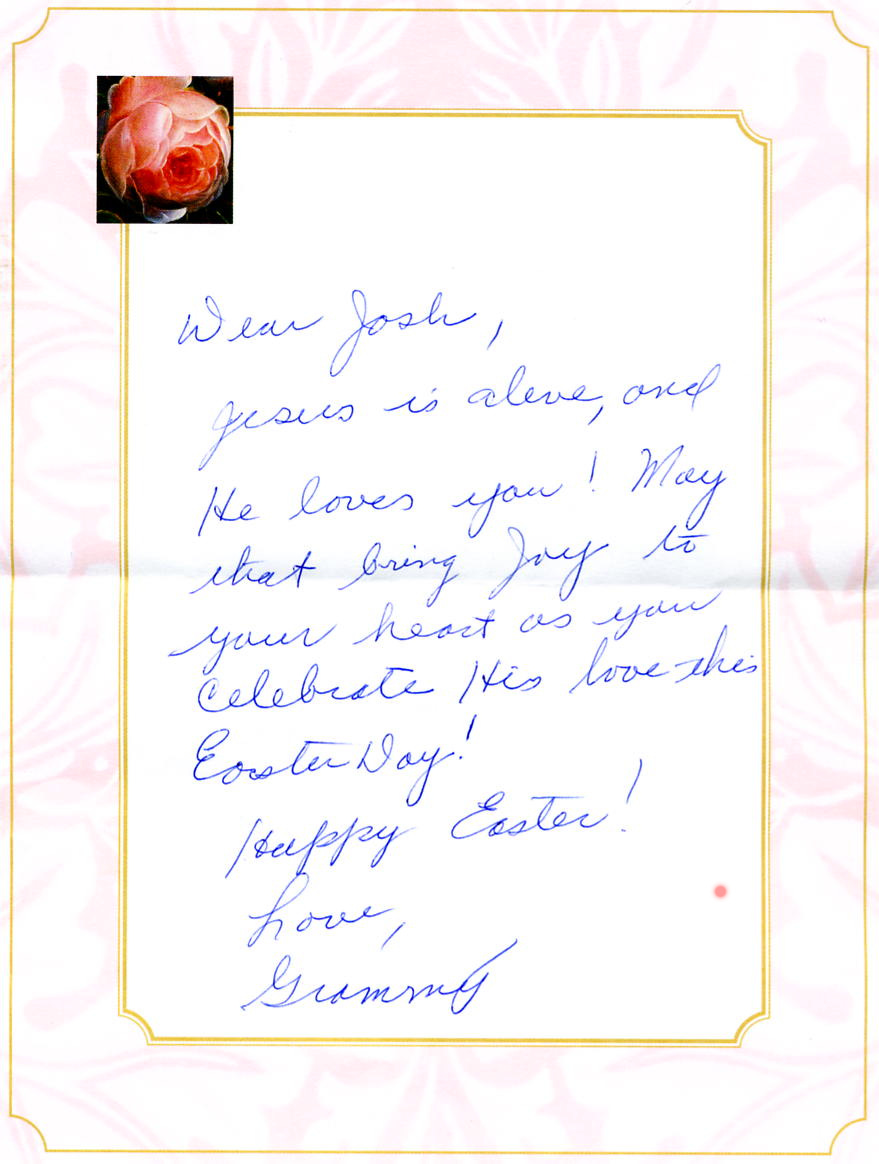 Dear Josh,
Jesus is alive, and
He loves you! May
that bring Joy to
your heart as you
Celebrate His love this
Easter Day!
Happy Easter!
Love,
Grammy